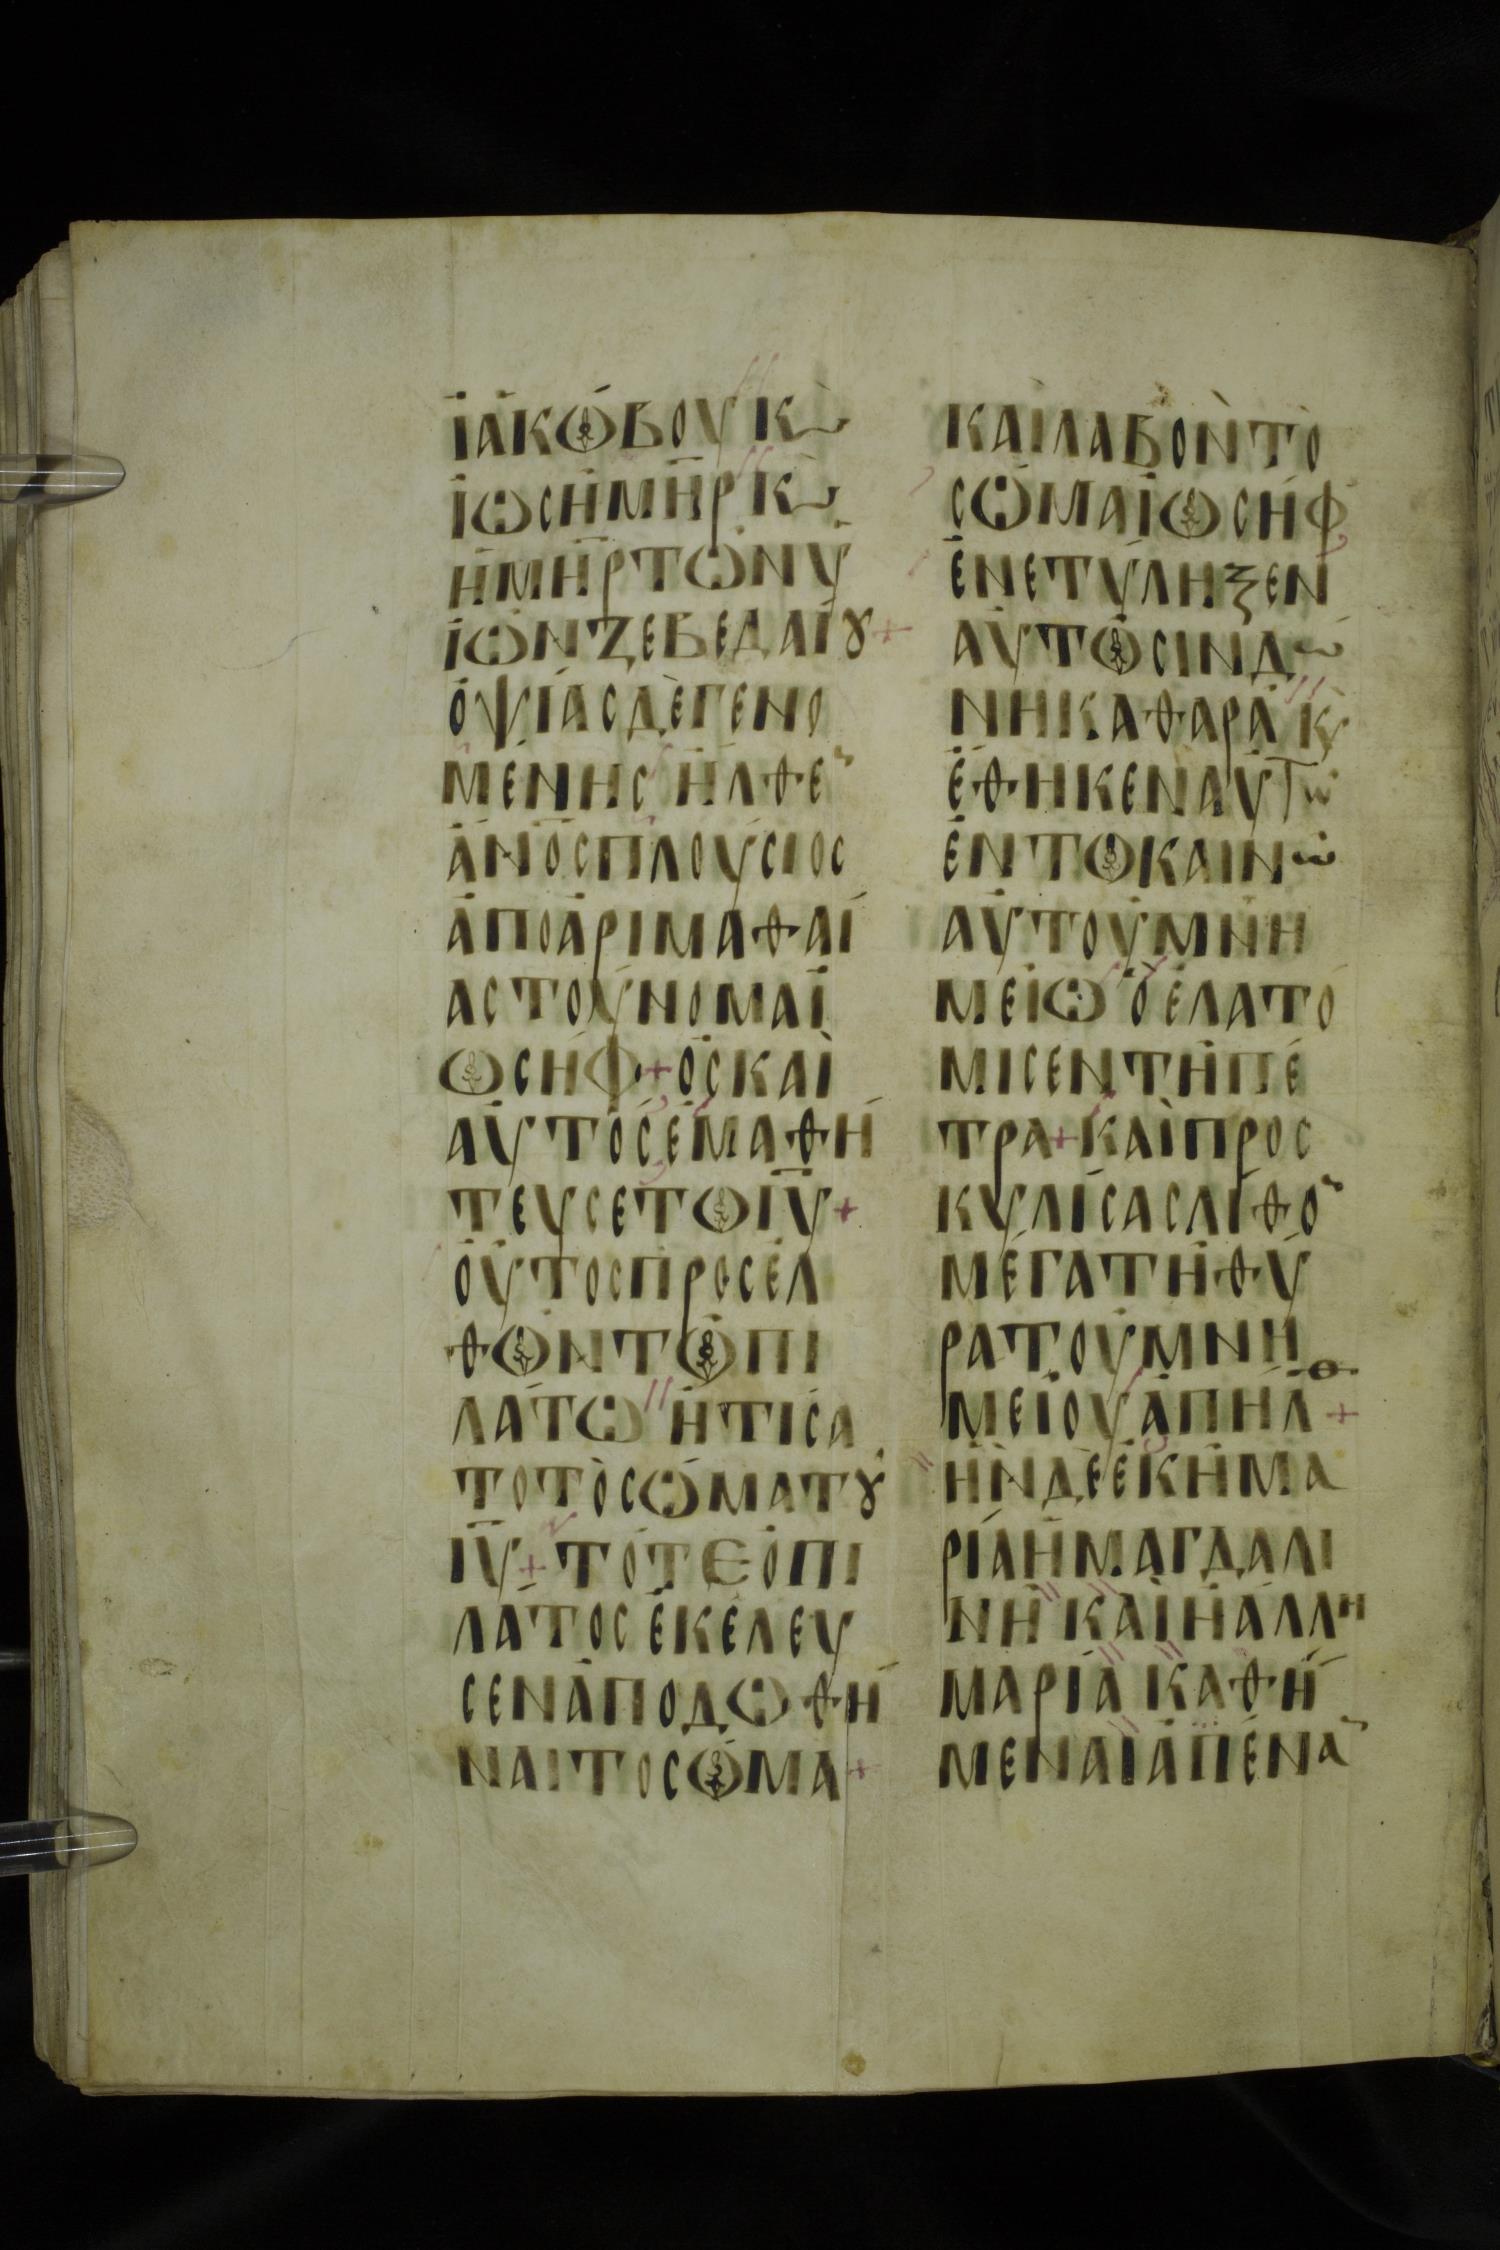 ΙΑΚΩΒΟΥ Κ
ΙΩΣΗ ΜΗΡ Κ
Η ΜΗΡ ΤΩΝ Υ
ΙΩΝ ΖΕΒΕΔΑΙȢ+
ΟΨΙΑΣ ΔΕ ΓΕΝΟ
ΜΕΝΗΣ ΗΛΘΕ
ΑΝΟΣ ΠΛΟΥΣΙΟΣ
ΑΠΟ ΑΡΙΜΑΘΑΙ
ΑΣ ΤΟΥΝΟΜΑ Ϊ
ΩΣΗΦ+ ΟΣ ΚΑΙ
ΑΥΤΟΣ ΕΜΑΘΗ
ΤΕΥΣΕ ΤΩ ΙΥ+
ΟΥΤΟΣ ΠΡΟΣΕΛ
ΘΩΝ ΤΩ ΠΙ
ΛΑΤΩ ΗΤΙΣΑ
ΤΟ ΤΟ ΣΩΜΑ ΤȢ
ΙΥ+ ΤΟΤΕ Ο ΠΙ
ΛΑΤΟΣ ΕΚΕΛΕΥ
ΣΕΝ ΑΠΟΔΩΘΗ
ΝΑΙ ΤΟ ΣΩΜΑ+
ΚΑΙ ΛΑΒΟΝ ΤΟ
ΣΩΜΑ Ϊ ΩΣΗΦ
ΕΝΕΤΥΛΗΞΕΝ
ΑΥΤΩ ΣΙΝΔΩ
ΝΗ ΚΑΘΑΡΑ Κ
ΕΘΗΚΕΝ ΑΥΤω
ΕΝ ΤΩ ΚΑΙΝω
ΑΥΤΟΥ ΜΝΗ
ΜΕΙΩ Ο ΕΛΑΤΟ
ΜΙΣΕΝ ΤΗ ΠΕ
ΤΡΑ+ ΚΑΙ ΠΡΟΣ
ΚΥΛΙΣΑΣ ΛΙΘΟ
ΜΕΓΑ ΤΗ ΘΥ
ΡΑ ΤΟΥ ΜΝΗ
ΜΕΙΟΥ ΑΠΗΛΘ+
ΗΝ ΔΕ ΕΚΗ ΜΑ
ΡΙΑ Η ΜΑΓΔΑΛΙ
ΝΗ ΚΑΙ Η ΑΛΛΗ
ΜΑΡΙΑ ΚΑΘΗ
ΜΕΝΑΙ ΑΠΕΝΑ